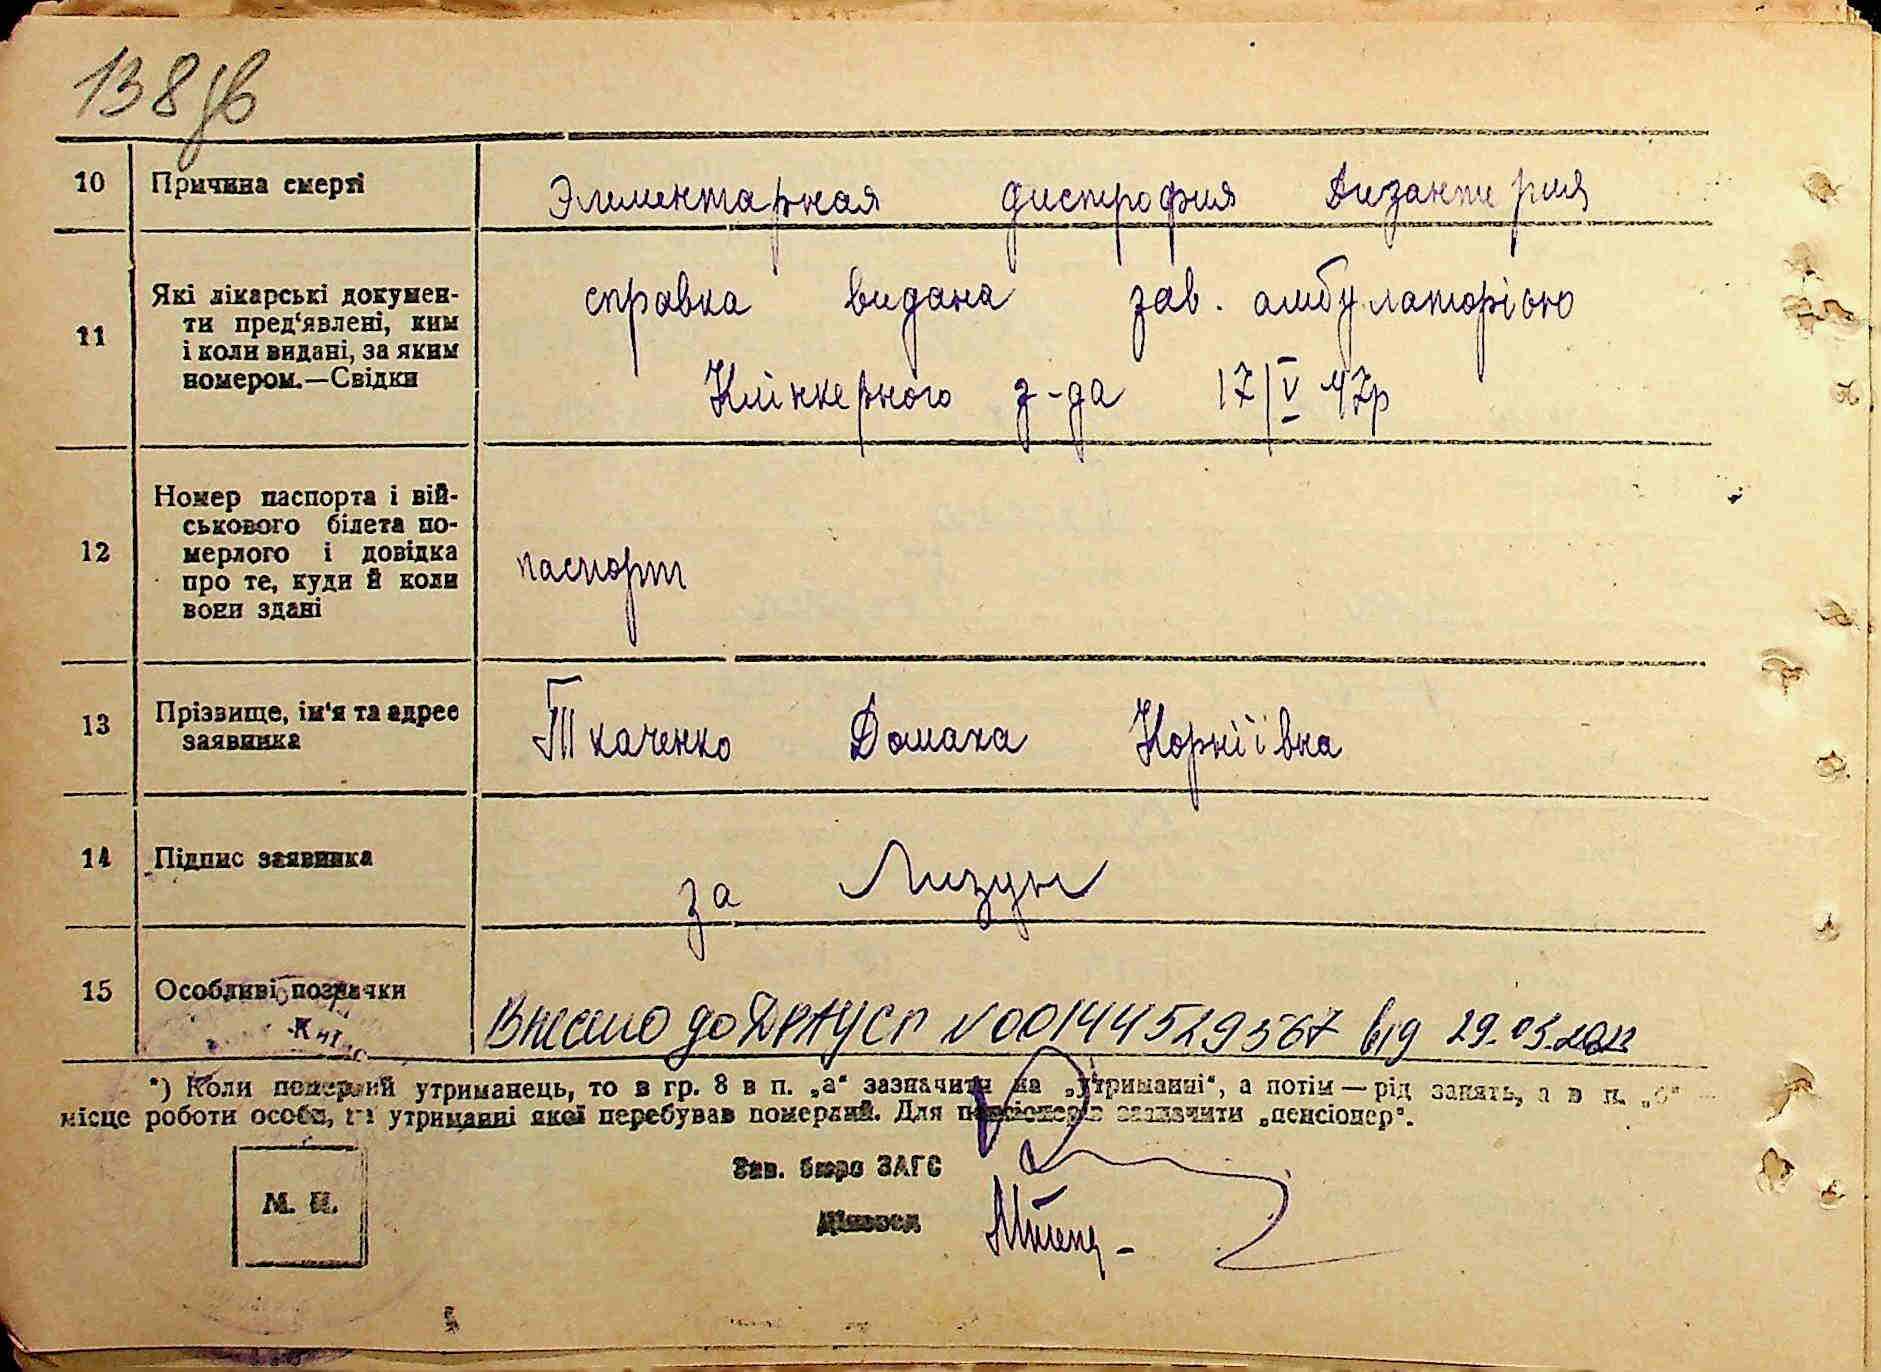 138зв
10 Причина смерті Элементарная дистрофия Дизантерия
11 Які лікарські докумен-
ти пред‘явлені, ким
і коли видані, за яким
номером.—Свідки
справка видана зав. амбулаторією
Клінкерного з-да 17/V 47р
12 Номер паспорта і вій-
ськового білета по-
мерлого і довідка
про те, куди й коли
вони здані
паспорт
13 Прізвище, ім‘я та адрес
заявника
Ткаченко Домаха Корніївна
14 Підпис заявника за Лизун
15 Особливі позначки
Внесено до ДРАЦСГ №00144529567 від 29.03.2022
*) Коли померлий утриманець, то в гр. 8 в п. „а“ зазначити на „утриманні“, а потім — рід занять, а в п. „б“ —
місце роботи особи, на утриманні якої перебував померлий. Для пенсіонерів зазначити „пенсіонер“.
Зав. бюро ЗАГС
М. П.
Діловод